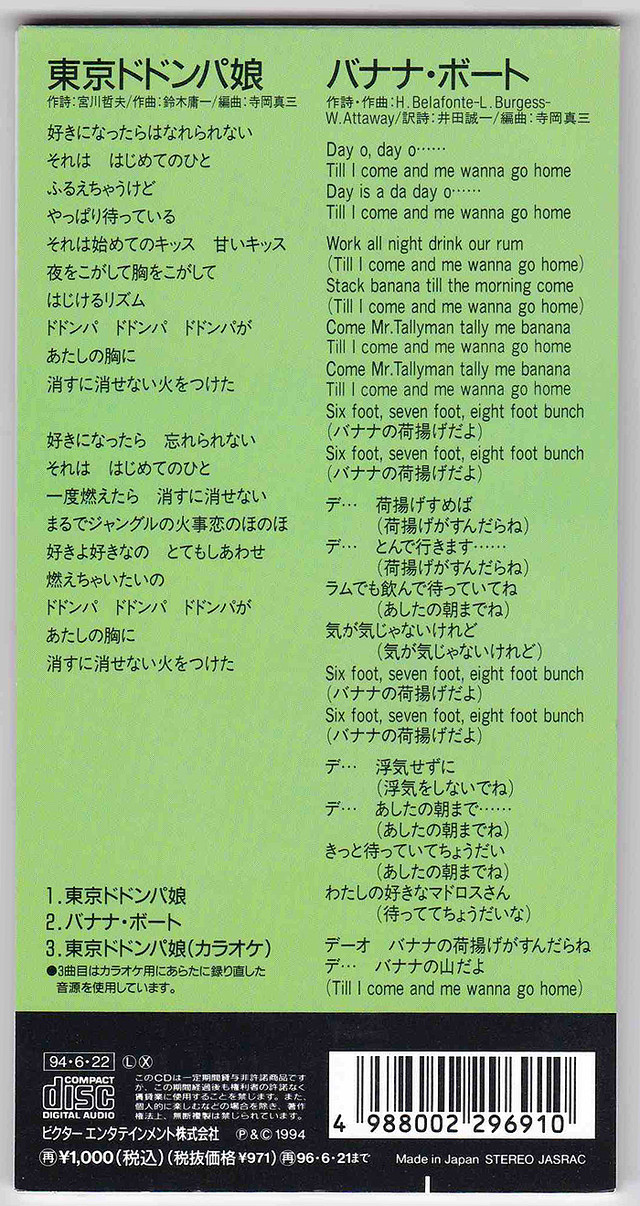 東京ドドンパ娘
作詩:宮川哲夫/作曲:鈴木庸一/編曲:寺岡真三
好きになったらはなれられない
それは　はじめてのひと
ふるえちゃうけど
やっぱり待っている
それは始めてのキッス　甘いキッス
夜をこがして胸をこがして
はじけるリズム
ドドンパ　ドドンパ　ドドンパが
あたしの胸に
消すに消せない火をつけた
好きになったら　忘れられない
それは　はじめてのひと
一度燃えたら　消すに消せない
まるでジャングルの火事恋のほのほ
好きよ好きなの　とてもしあわせ
燃えちゃいたいの
ドドンパ　ドドンパ　ドドンパが
あたしの胸に
消すに消せない火をつけた
1.東京ドドンパ娘
2.バナナ・ボート
3.東京ドドンパ娘(カラオケ)
●3曲目はカラオケ用にあらたに録り直した
音源を使用しています。
バナナ・ボート
作詩・作曲:H.Belafonte-L.Burgess-
W.Attaway/訳詩:井田誠一/編曲:寺岡真三
Day o, day o……
Till I come and me wanna go home
Day is a da day o……
Till I come and me wanna go home
Work all night drink our rum
(Till I come and me wanna go home)
Stack banana till the morning come
(Till I come and me wanna go home)
Come Mr.Tallyman tally me banana
Till I come and me wanna go home
Come Mr.Tallyman tally me banana
Till I come and me wanna go home
Six foot, seven foot, eight foot bunch
(バナナの荷揚げだよ)
Six foot, seven foot, eight foot bunch
(バナナの荷揚げだよ)
デ…　荷揚げすめば
(荷揚げがすんだらね)
デ…　とんで行きます……
(荷揚げがすんだらね)
ラムでも飲んで待っていてね
(あしたの朝までね)
気が気じゃないけれど
(気が気じゃないけれど)
Six foot, seven foot, eight foot bunch
(バナナの荷揚げだよ)
Six foot, seven foot, eight foot bunch
(バナナの荷揚げだよ)
デ…　浮気せずに
(浮気をしないでね)
デ…　あしたの朝まで……
(あしたの朝までね)
きっと待っていてちょうだい
(あしたの朝までね)
わたしの好きなマドロスさん
(待っててちょうだいな)
デーオ　バナナの荷揚げがすんだらね
デ…　バナナの山だよ
(Till I come and me wanna go home)
94・6・22 Ⓛ Ⓧ
COMPACT
disc
DIGITAL AUDIO
このCDは一定期間貸与非許諾商品です
が、この期間経過後も権利者の許諾なく
賃貸業に使用することを禁じます。また、
個人的に楽しむなどの場合を除き、著作
権法上、無断複製は禁じられています。
ビクター エンタテインメント株式会社　Ⓟ&© 1994
㊢¥1,000(税込)(税抜価格¥971)㊢96・6・21まで
4 988002 296910
Made in Japan STEREO JASRAC